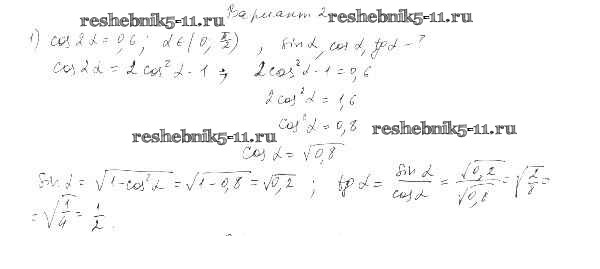 Вариант 2
reshebnik5-11.ru reshebnik5-11.ru
1) cos2α = 0,6; α∈(0, π/2), sinα, cosα, tgα - ?
cos2α = 2cos²α - 1; 2cos²α - 1 = 0,6
2cos²α = 1,6
cos²α = 0,8
reshebnik5-11.ru reshebnik5-11.ru
cosα = √0,8
sinα = √1-cos²α = √1-0,8 = √0,2; tgα = sinα/cosα = √0,2/√0,8 = √2/8 =
= √1/4 = 1/2.